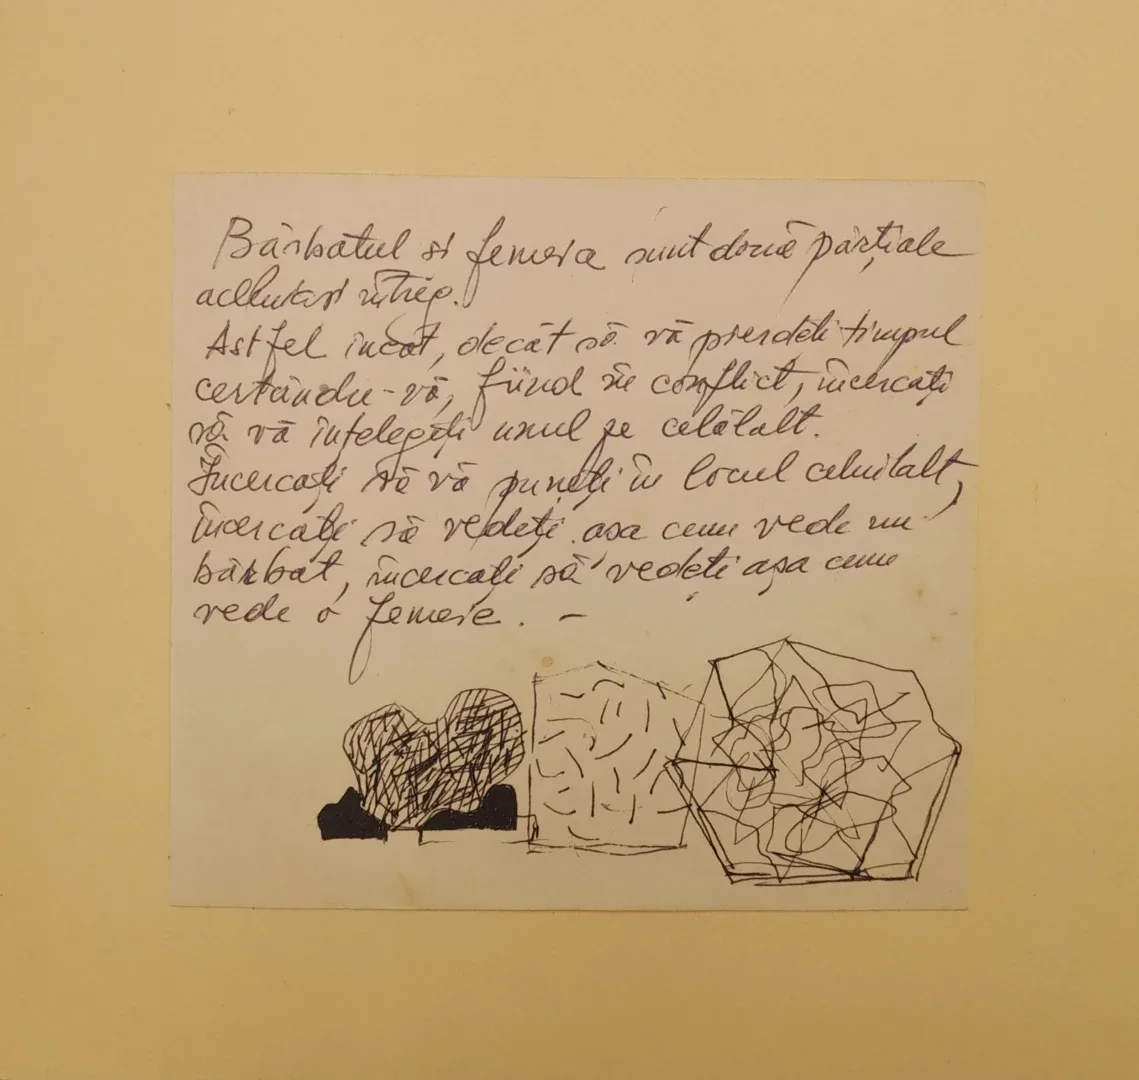 Bărbatul si femeia sunt două părțiale
aceluiasi întreg.
Astfel încât, decât să vă pierdeti timpul
certându-vă, fiind în conflict, încercați
să vă înțelegeți unul pe celălalt.
Încercați să vă puneți în locul celuilalt,
încercați să vedeți asa cum vede un
bărbat, încercați să vedeti așa cum
vede o femeie. –